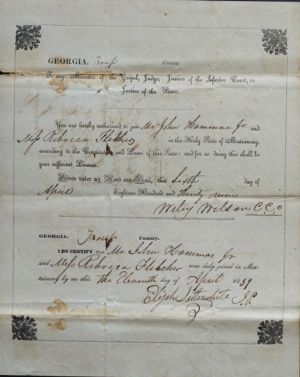 GEORGIA, Troup County:
To any Minister of the Gospel, Judge, Justice of the Inferior Court, or
Justice of the Peace.
You are hereby authorized to join Mr John Hammac Jr. and
Miss Rebecca Fletcher in the Holy State of Matrimony,
according to the Constitution and Laws of this State; and for so doing this shall be
your sufficient License.
Given under my Hand and Seal, this Sixth day of
April Eighteen Hundred and thirty nine
Wiley Wilson C.C.O
GEORGIA. Troup County.
I DO CERTIFY that Mr John Hammac Jr
and Miss Rebecca Fletcher were duly joined in Ma-
trimony by me this the Eleventh day of April 1839
Elijah Satterwhite J.P.